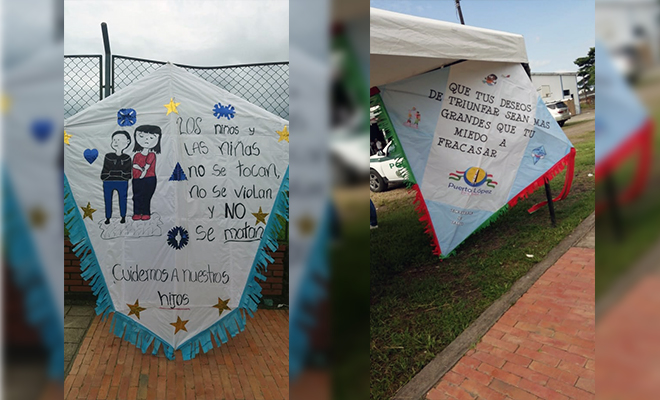 LOS NIÑOS Y
LAS NIÑAS
NO SE TOCAN,
NO SE VIOLAN
Y NO
SE MATAN
CUIDEMOS A NUESTROS
HIJOS
QUE TUS DESEOS
DE TRIUNFAR SEAN MAS
GRANDES QUE TU
MIEDO A
FRACASAR
Puerto López